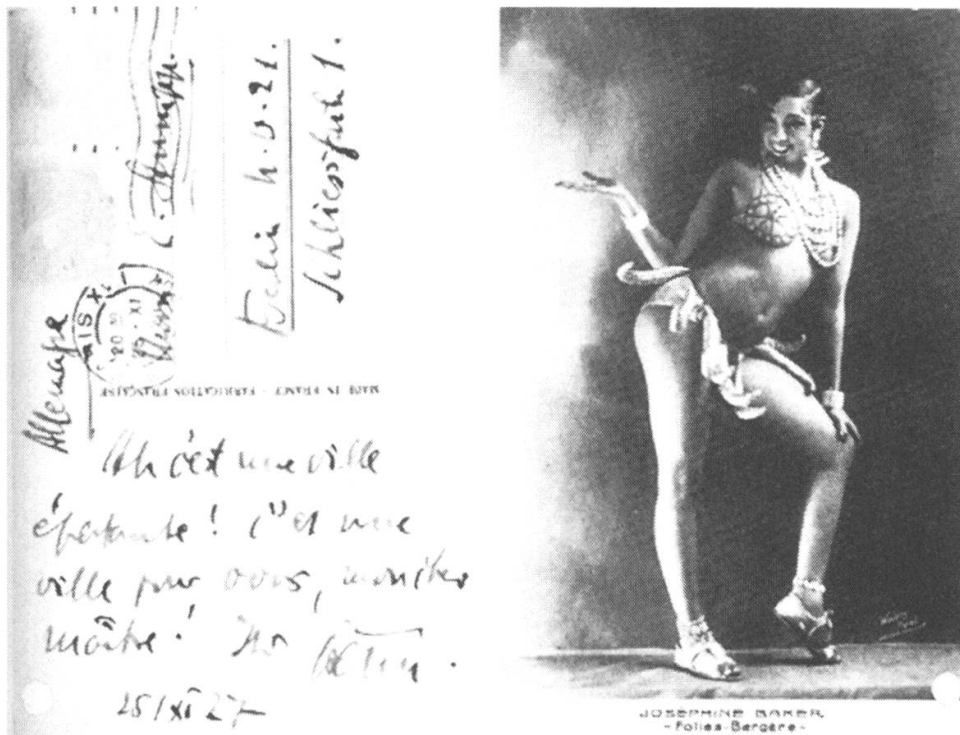 Allemagne
Berlin N.W. 21.
MADE IN FRANCE - FABRICATION FRANÇAISE
Ah c'est une ville
épatante! C'est une
ville pour vous, mon cher
maître! Ihr
25/XI 27
JOSEPHINE BAKER
-Folies-Bergère-